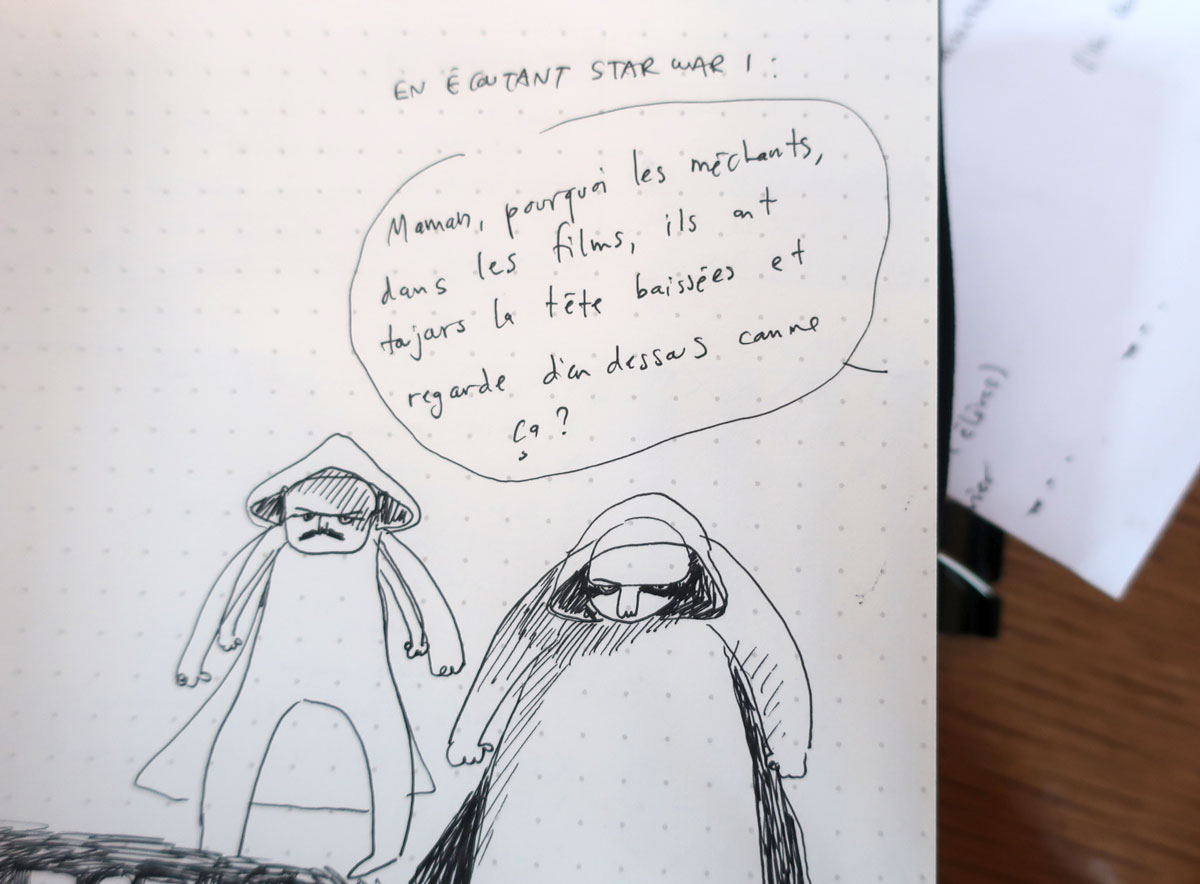 EN ÉCOUTANT STAR WAR 1 :
Maman, pourquoi les méchants,
dans les films, ils ont
toujours la tête baissées et
regarde d'en dessous comme
ça ?
élème)